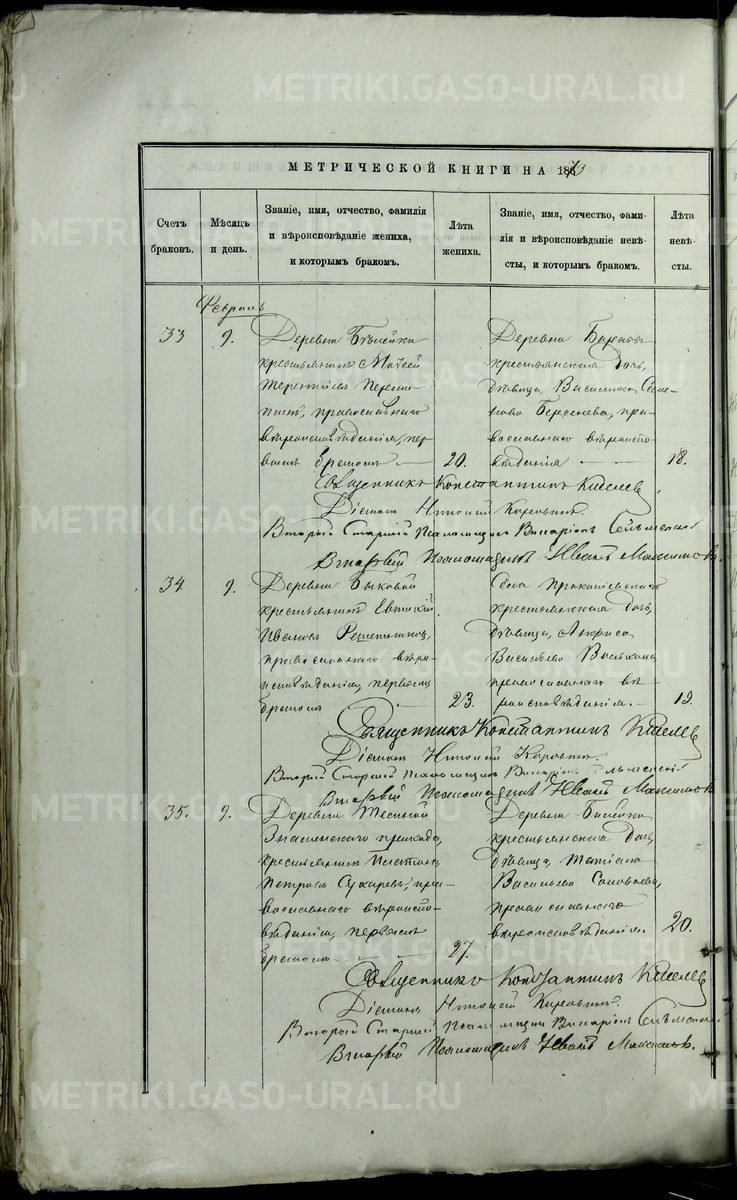 METRIKI.GASO-URAL.RU
МЕТРИЧЕСКОЙ КНИГИ НА 1873
Счетъ браковъ.
Мѣсяцъ и день.
Званіе, имя, отчество, фамилія
и вѣроисповѣданіе жениха,
и которымъ бракомъ.
Лѣта жениха.
Званіе, имя, отчество, фами-
лія и вѣроисповѣданіе невѣ-
сты, и которымъ бракомъ.
Лѣта невѣ-
сты.
Февраль
33 9. Деревни
крестьянинъ
православнаго
вѣроисповѣданія, пер-
вымъ бракомъ 20.
Деревни
крестьянская дочь,
дѣвица, Василиса Семе-
нова Береснева, пра-
вославнаго вѣроиспо-
вѣданія 18.
Священникъ Константинъ Киселевъ
Діаконъ
Второй Старшій Псаломщикъ
Вторый Псаломщикъ Иванъ Максимовъ.
34. 9. Деревни Быковой
крестьянинъ Евтихій
Ивановъ Решетниковъ,
православнаго вѣро-
исповѣданія, первымъ
бракомъ 23.
Села
крестьянская дочь,
дѣвица, Анфиса
Васильева
православнаго вѣ-
роисповѣданія. 19.
Священникъ Константинъ Киселевъ
Діаконъ
Второй Старшій Псаломщикъ
Вторый Псаломщикъ Иванъ Максимовъ
35. 9. Деревни
Знаменскаго прихода,
крестьянинъ Платонъ
Петровъ Сухаревъ, пра-
вославнаго вѣроиспо-
вѣданія, первымъ
бракомъ 27.
Деревни
крестьянская дочь,
дѣвица Татіана
Васильева Соловьева,
православнаго
вѣроисповѣданія. 20.
Священникъ Константинъ Киселевъ
Діаконъ
Второй Старшій Псаломщикъ
Вторый Псаломщикъ Иванъ Максимовъ.